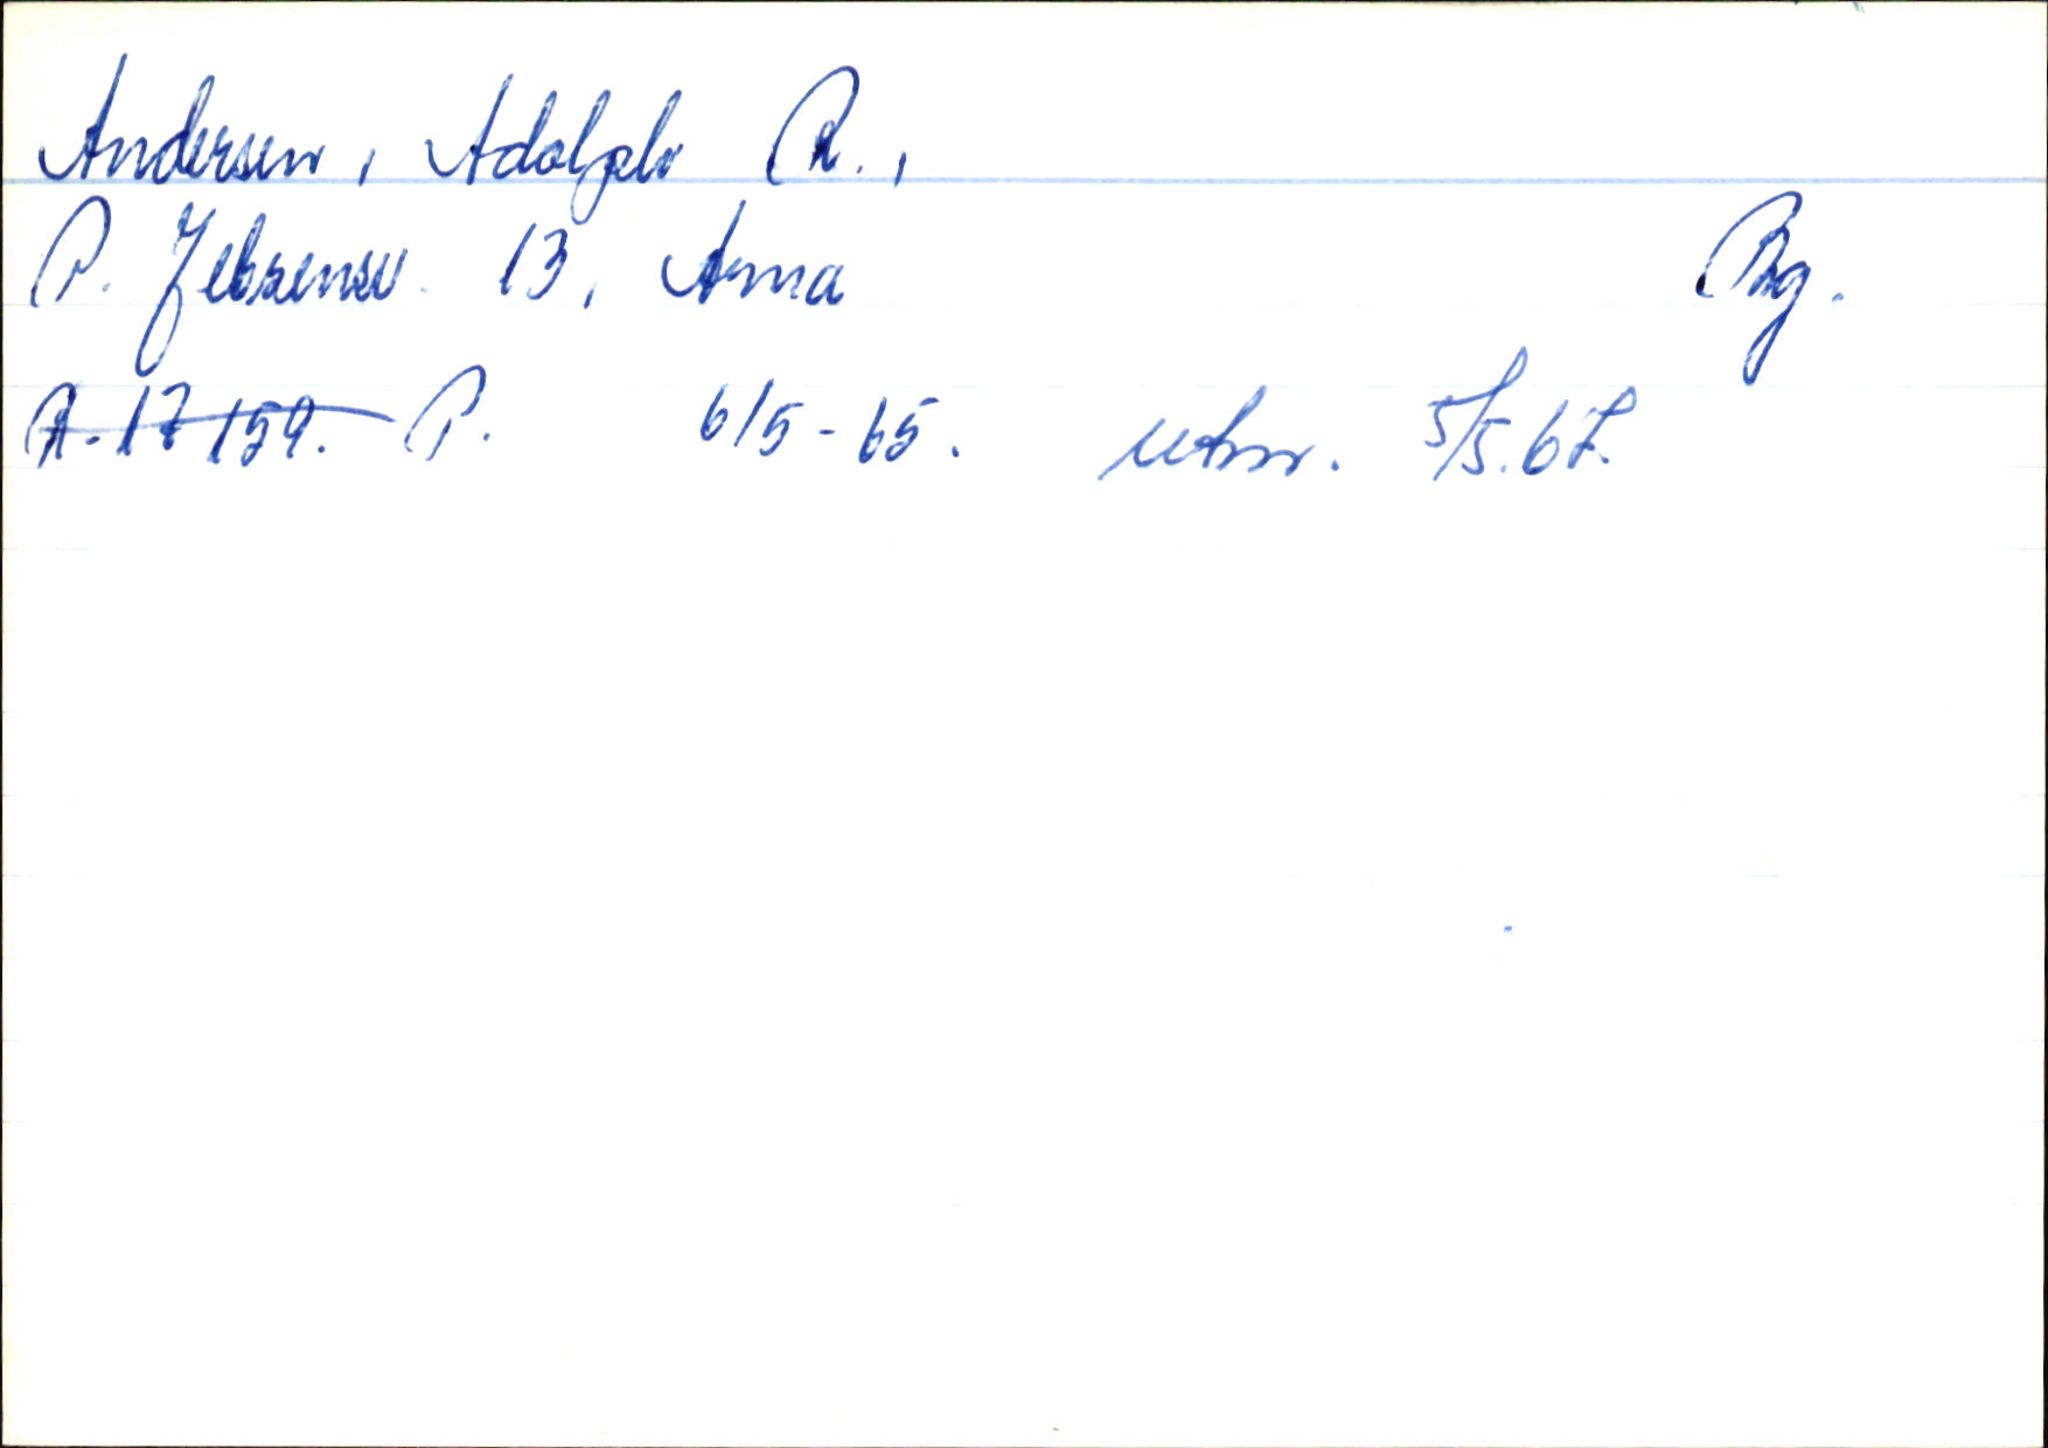 Andersen, Adolph R.,
P. Jebsensv. 13, Arna Bg.
R-17159. P. 6/5-65. utm. 5/5.67.